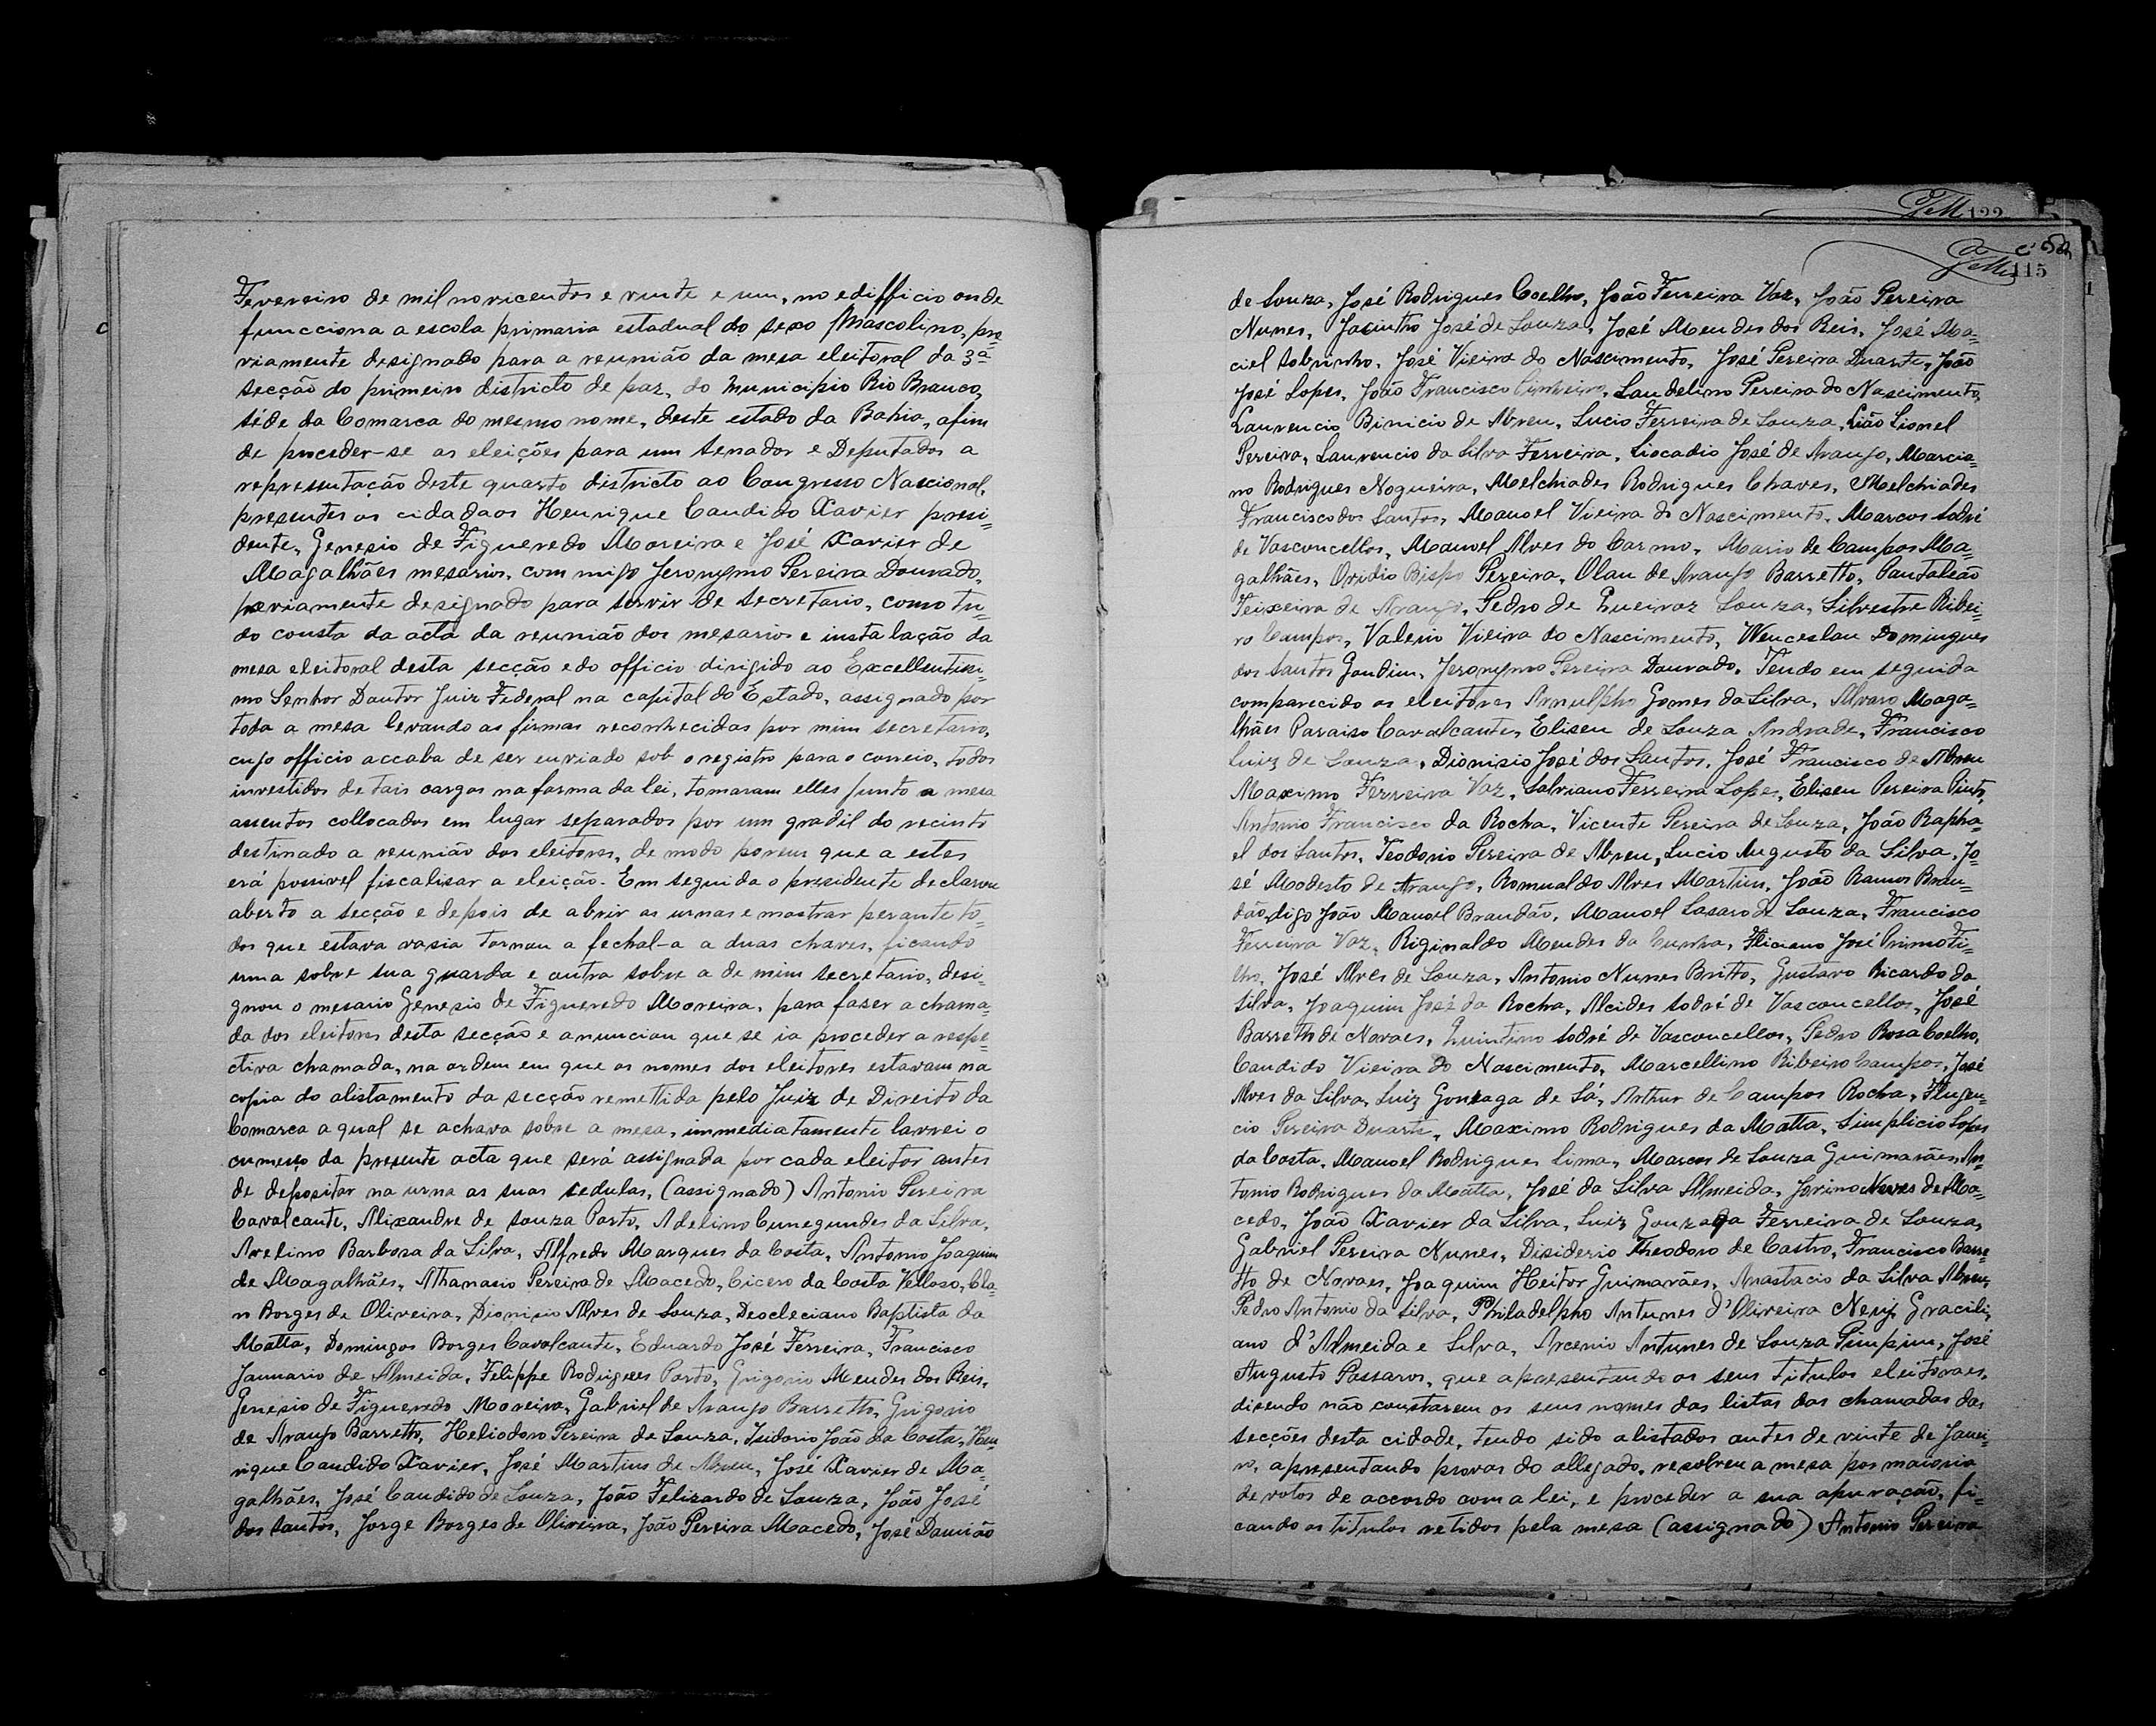 Fevereiro de mil novicentos e vinte e um, no edifficio onde
funcciona a escola primaria estadual do sexo Mascolino, pre=
viamente designado para a reunião da mesa eleitoral da 3ª
secção do primeiro districto de paz, do Municipio Rio Branco,
séde da Comarca do mesmo nome, deste estado da Bahia, afim
de proceder-se as eleições para um Senador e Deputados a
representação deste quarto districto ao Congresso Nascional,
presentes os cidadaos Henrique Candido Xavier presi=
dente, Genesio de Figueredo Moreira e José Xavier de
Magalhães mesarios, com migo Jeronymo Pereira Dourado,
previamente designado para servir de secretario, como tu=
do consta da acta da reunião dos mesarios e instalação da
mesa eleitoral desta secção e do officio dirigido ao Excellentissi=
mo Senhor Doutor Juiz Federal na capital do Estado, assignado por
toda a mesa levando as firmas reconhecidas por mim secretario,
cujo officio accaba de ser enviado sob o registro para o correio, todos
investidos de tais cargos na forma da lei, tomaram elles junto a mesa
assentos collocados em lugar separados por um gradil do recinto
destinado a reunião dos eleitores, de modo porem que a estes
erá possivel fiscalisar a eleição. Em seguida o presidente declarou
aberto a secção e depois de abrir as urnas e mostrar perante to=
dos que estava vasia tornou a fechal-a a duas chaves, ficando
uma sobre sua guarda e outra sobre a de mim secretario, desi=
gnou o mesario Genesio de Figueredo Moreira, para faser a chama=
da dos eleitores desta secção e anunciou que se ia proceder a respe=
ctiva chamada, na ordem em que os nomes dos eleitores estavam na
copia do alistamento da secção remettida pelo Juiz de Direito da
Comarca a qual se achava sobre a mesa, immediatamente lavrei o
cumeço da presente acta que será assignada por cada eleitor antes
de depositar na urna as suas sedulas, (assignado) Antonio Pereira
Cavalcante, Alixandre de Souza Porto, Adelino Cunegundes da Silva,
Avelino Barbosa da Silva, Alfredo Marques da Costa, Antonio Joaquim
de Magalhães, Athanasio Pereira de Macedo, Cicero da Costa Velloso,
n Borges de Oliveira, Dionisio Alves de Souza, Deocleciano Baptista da
Matta, Domingos Borges Cavalcante, Eduardo José Ferreira, Francisco
Januario de Almeida, Felippe Rodrigues Porto, Grigorio Mendes dos Reis,
Genesio de Figueredo Moreira, Gabriel de Araujo Barretto, Grigorio
de Araujo Barretto, Heliodoro Pereira de Souza, Isidorio João da Costa, Hen
rique Candido Xavier, José Martins de Abreu, José Xavier de Ma=
galhães, José Candido de Souza, João Felizardo de Souza, João José
dos Santos, Jorge Borges de Oliveira, João Pereira Macedo, José Damião
122
115
de Souza, José Rodrigues Coelho, João Ferreira Vaz, João Pereira
Nunes, Jacintho José de Souza, José Mendes dos Reis, José Ma=
ciel Sobrinho, José Vieira do Nascimento, José Pereira Duarte, João
José Lopes, João Francisco Pinheiro, Laudelino Pereira do Nascimento,
Laurencio Binicio de Abreu, Lucio Ferreira de Souza, Lião Lionel
Pereira, Laurencio da Silva Ferreira, Liocadio José de Araujo, Marcia=
no Rodrigues Nogueira, Melchiades Rodrigues Chaves, Melchiades
Francisco dos Santos, Manoel Vieira do Nascimento, Marcos Sodré
de Vasconcellos, Manoel Alves do Carmo, Mario de Campos Ma=
galhães, Ovidio Bispo Pereira, Olau de Araujo Barretto, Pantaleão
Teixeira de Araujo, Pedro de Queiroz Souza, Silvestre Ribei=
ro Campos, Valerio Vieira do Nascimento, Wenceslau Domingues
dos Santos Gondim, Jeronymo Pereira Dourado. Tendo em seguida
comparecido os eleitores Arnulpho Gomes da Silva, Alvaro Maga=
lhães Paraiso Cavalcante, Eliseu de Souza Andrade, Francisco
Luiz de Souza, Dionisio José dos Santos, José Francisco de Abreu
Maximo Ferreira Vaz, Salviano Ferreira Lopes, Eliseu Pereira Pinto,
Antonio Francisco da Rocha, Vicente Pereira de Souza, João Rapha=
el dos Santos, Teodorio Pereira de Abreu, Lucio Augusto da Silva, Jo=
sé Modesto de Araujo, Romualdo Alves Martins, João Ramos Bran=
dão, digo João Manoel Brandão, Manoel Lasaro de Souza, Francisco
Ferreira Vaz, Riginaldo Mendes da Cunha, Fliciano José Primo Fi=
lho, José Alves de Souza, Antonio Nunes Britto, Gustavo Ricardo da
Silva, Joaquim José da Rocha, Alcides Sodré de Vasconcellos, José
Barretto de Novaes, Quintino Sodré de Vasconcellos, Pedro Rosa Coelho,
Candido Vieira do Nascimento, Marcellino Ribeiro Campos, José
Alves da Silva, Luiz Gonzaga de Sá, Arthur de Campos Rocha, Flugen=
cio Pereira Duarte, Maximo Rodrigues da Matta, Simplicio Lopes
da Costa, Manoel Rodrigues Lima, Marcos de Souza Guimarães, An=
tonio Rodrigues da Matta, José da Silva Almeida, Jovino Neves de Ma=
cedo, João Xavier da Silva, Luiz Gonzaga Ferreira de Souza,
Gabriel Pereira Nunes, Disiderio Theodoro de Castro, Francisco Barre=
tto de Novaes, Joaquim Heitor Guimarães, Anastacio da Silva Abreu,
Pedro Antonio da Silva, Philadelpho Antunes d'Oliveira Neuj, Gracili,
ano d'Almeida e Silva, Arcenio Antunes de Souza Pimpim, José
Augusto Passaros, que apresentando os seus titulos eleitoraes,
disendo não constarem os seus nomes das listas das chamadas das
secções desta cidade, tendo sido alistados antes de vinte de Janei=
ro, apresentando provas do allegado, resolveu a mesa por maioria
de votos de accordo com a lei, e proceder a sua apuração, fi=
cando os titulos retidos pela mesa (assignado) Antonio Pereira